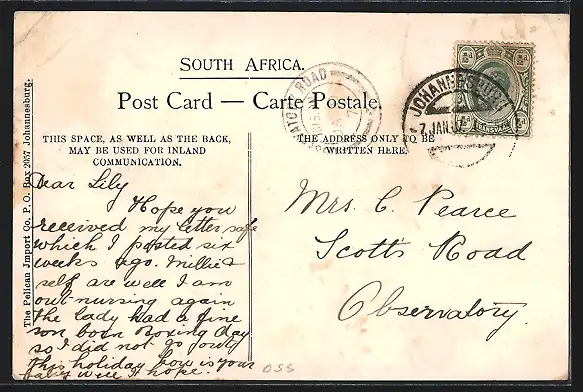 SOUTH AFRICA.
Post Card — Carte Postale.
THIS SPACE, AS WELL AS THE BACK,
MAY BE USED FOR INLAND
COMMUNICATION.
THE ADDRESS ONLY TO BE
WRITTEN HERE.
The Pelican Import Co. P. O. Box 2657 Johannesburg.
Dear Lily
Hope you
received my letter safe
which I posted six
weeks ago. Millie &
self are well I am
out nursing again
the lady had a fine
son born Boxing day
so I did not go
this holiday how is your
baby well I hope.
Mrs. C. Pearce
Scotts Road
Observatory.
JOHANNESBURG
7 JAN
ROAD
½d ½d
½d ½d
OSS